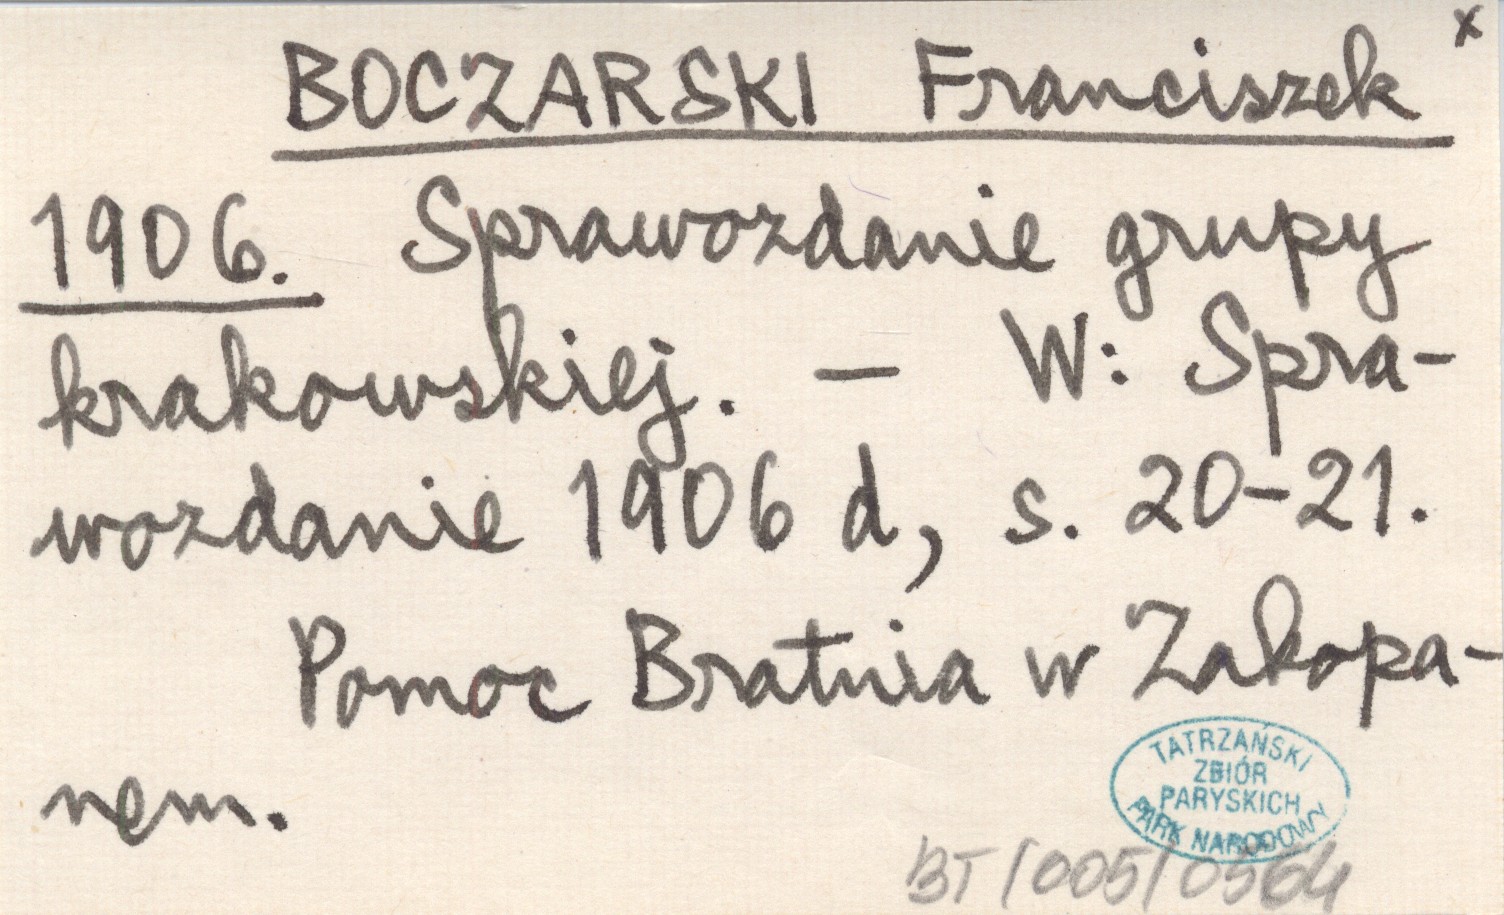 x
BOCZARSKI Franciszek
1906. Sprawozdanie grupy
krakowskiej. — W: Spra-
wozdanie 1906 d, s. 20-21.
Pomoc Bratnia w Zakopa-
nem.
TATRZAŃSKI
ZBIÓR
PARYSKICH
PARK NARODOWY
BT/005/0564